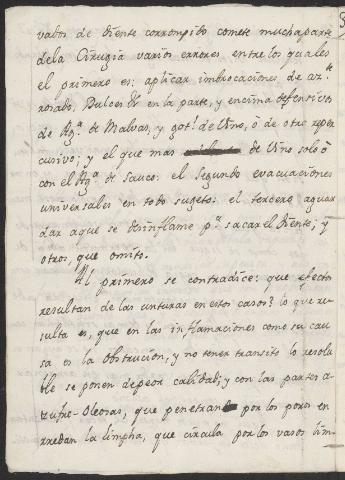 vados de diente corrompido comete mucha parte
de la Cirugia varios errores, entre los quales
el primero es: aplicar imbrocaciones de az.te
rosado, Dulces &c en la parte, y encima defensivos
de Ag.a de Malvas, y got.s de Vino, ò de otro reper
cusivo; y el que mas de Vino solo ò
con el Ag.a de Sauco: el segundo evacuaciones
universales en todo sugeto: el tercero aguar
dar aque se desinflame p.a sacar el diente; y
otros, que omito.
Al primero se contradice: que efecto
resultan de las unturas en estos casos? lo que re
sulta es, que en las inflamaciones como su cau
sa es la obstrucion, y no tener transito lo resolu
ble se ponen de peor calidad; y con las partes a-
zufre-oleosas, que penetran por los poros en
rredan la limpha, que circula por los vasos lim-